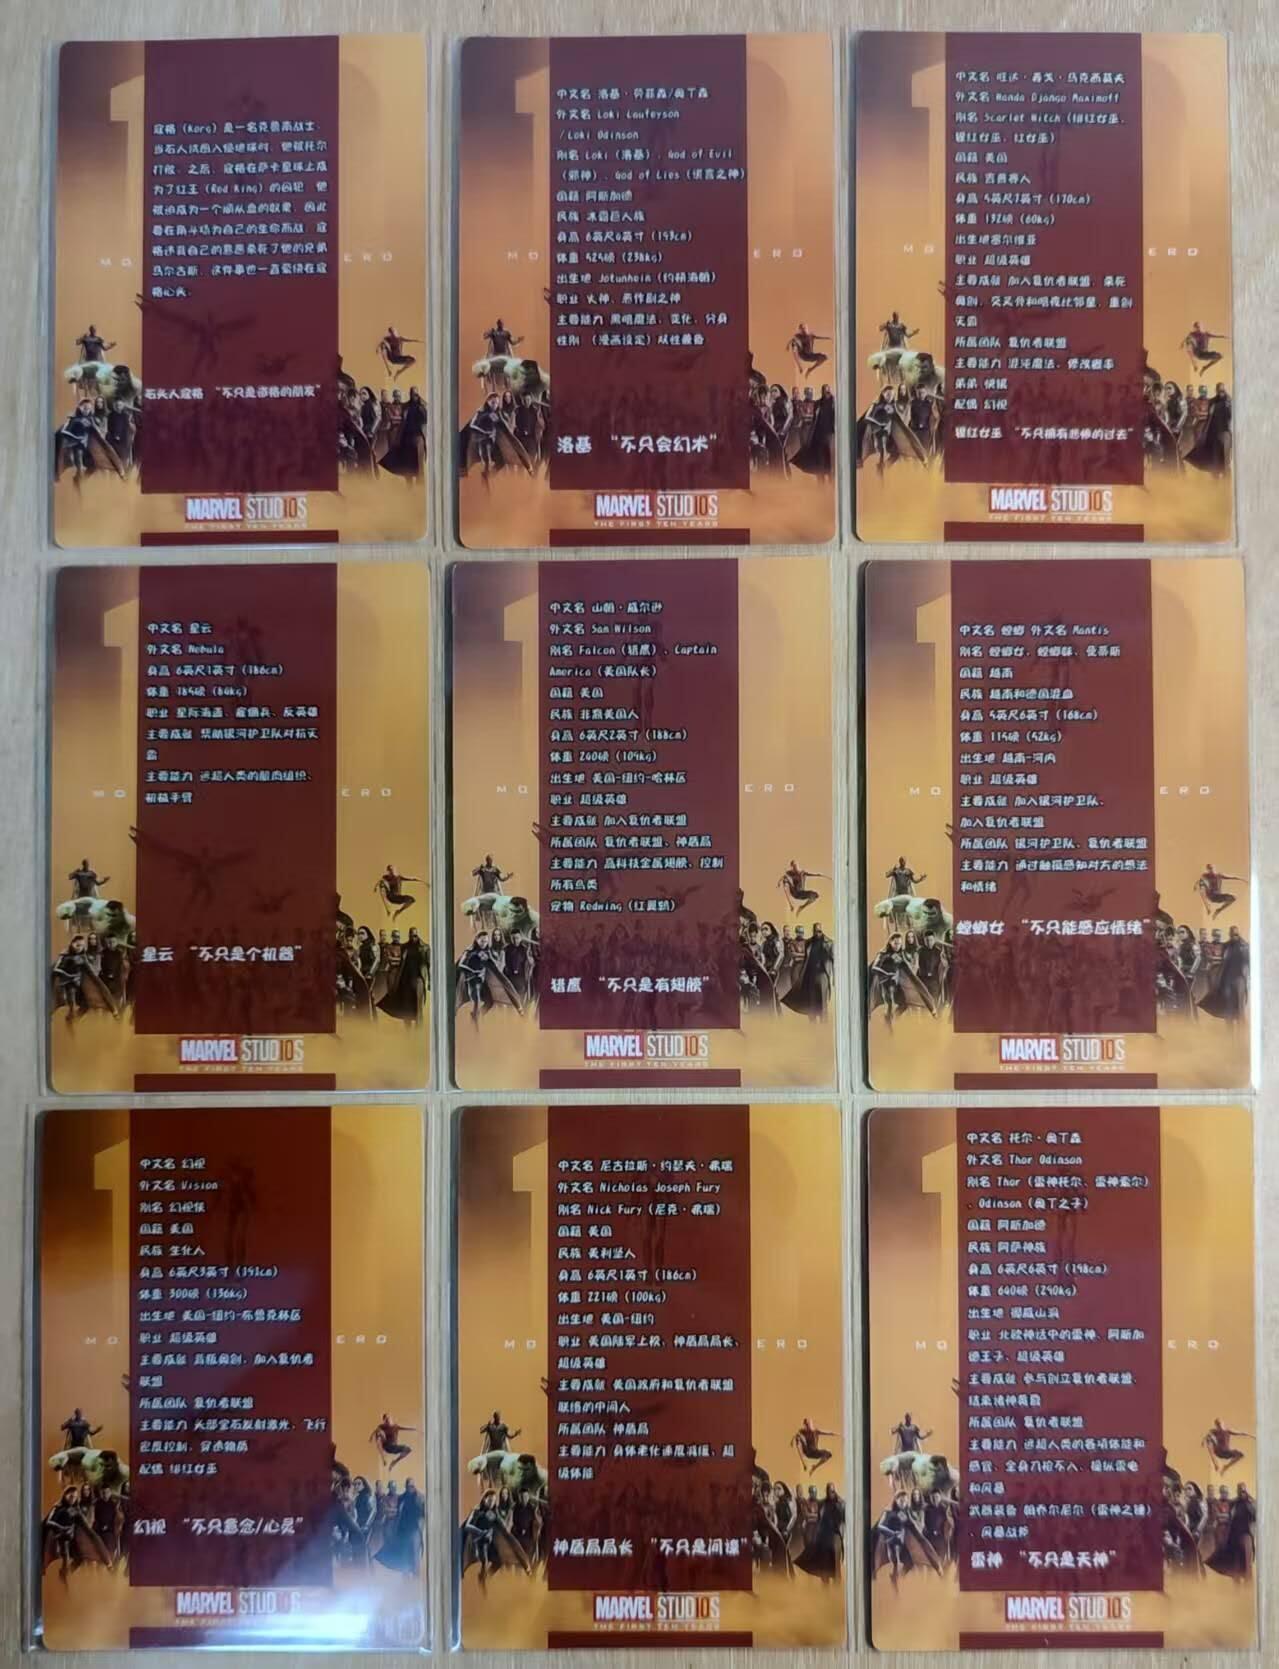 寇格（Korg）是一名克鲁南战士，
当石人试图入侵地球时，他被托尔
打败。之后，寇格在萨卡星球上成
为了红王（Red King）的囚犯，他
被迫成为一个顺从血的奴隶，因此
要在角斗场为自己的生命而战。寇
格违背自己的意愿杀死了他的兄弟
马尔吉斯，这件事也一直萦绕在寇
格心头。
石头人寇格 “不只是洛格的朋友”
MARVEL STUDIOS
THE FIRST TEN YEARS
中文名 洛基·劳菲森/奥丁森
外文名 Loki Laufeyson
/Loki Odinson
别名 Loki（洛基）、God of Evil
（邪神）、God of Lies（谎言之神）
国籍 阿斯加德
民族 冰霜巨人族
身高 6英尺4英寸（193cm）
体重 525磅（238kg）
出生地 Jotunheim（约顿海姆）
职业 火神、恶作剧之神
主要能力 黑暗魔法、变化、分身
性别 （漫画设定）双性兼备
洛基 “不只会幻术”
MARVEL STUDIOS
THE FIRST TEN YEARS
中文名 旺达·姜戈·马克西莫夫
外文名 Wanda Django Maximoff
别名 Scarlet Witch（绯红女巫、
猩红女巫、红女巫）
国籍 美国
民族 吉普赛人
身高 5英尺7英寸（170cm）
体重 132磅（60kg）
出生地塞尔维亚
职业 超级英雄
主要成就 加入复仇者联盟，杀死
奥创、交叉骨和暗夜比邻星，重创
灭霸
所属团队 复仇者联盟
主要能力 混沌魔法、修改概率
弟弟 快银
配偶 幻视
猩红女巫 “不只拥有悲惨的过去”
MARVEL STUDIOS
THE FIRST TEN YEARS
中文名 星云
外文名 Nebula
身高 6英尺1英寸（186cm）
体重 185磅（84kg）
职业 星际海盗、雇佣兵、反英雄
主要成就 帮助银河护卫队对抗灭
霸
主要能力 远超人类的肌肉组织、
机械手臂
星云 “不只是个机器”
MARVEL STUDIOS
THE FIRST TEN YEARS
中文名 山姆·威尔逊
外文名 Sam Wilson
别名 Falcon（猎鹰）、Captain
America（美国队长）
国籍 美国
民族 非裔美国人
身高 6英尺2英寸（188cm）
体重 240磅（109kg）
出生地 美国-纽约-哈林区
职业 超级英雄
主要成就 加入复仇者联盟
所属团队 复仇者联盟、神盾局
主要能力 高科技金属翅膀、控制
所有鸟类
宠物 Redwing（红翼鸫）
猎鹰 “不只是有翅膀”
MARVEL STUDIOS
THE FIRST TEN YEARS
中文名 螳螂 外文名 Mantis
别名 螳螂女、螳螂妹、曼蒂斯
国籍 越南
民族 越南和德国混血
身高 5英尺6英寸（168cm）
体重 115磅（52kg）
出生地 越南-河内
职业 超级英雄
主要成就 加入银河护卫队、
加入复仇者联盟
所属团队 银河护卫队、复仇者联盟
主要能力 通过触摸感知对方的想法
和情绪
螳螂女 “不只能感应情绪”
MARVEL STUDIOS
THE FIRST TEN YEARS
中文名 幻视
外文名 Vision
别名 幻视侠
国籍 美国
民族 生化人
身高 6英尺3英寸（191cm）
体重 300磅（136kg）
出生地 美国-纽约-布鲁克林区
职业 超级英雄
主要成就 背叛奥创，加入复仇者
联盟
所属团队 复仇者联盟
主要能力 头部宝石发射激光、飞行
密度控制、穿透物质
配偶 绯红女巫
幻视 “不只意念/心灵”
MARVEL STUDIOS
THE FIRST TEN YEARS
中文名 尼古拉斯·约瑟夫·弗瑞
外文名 Nicholas Joseph Fury
别名 Nick Fury（尼克·弗瑞）
国籍 美国
民族 美利坚人
身高 6英尺1英寸（186cm）
体重 221磅（100kg）
出生地 美国-纽约
职业 美国陆军上校、神盾局局长、
超级英雄
主要成就 美国政府和复仇者联盟
联络的中间人
所属团队 神盾局
主要能力 身体老化速度减缓、超
级体能
神盾局局长 “不只是间谍”
MARVEL STUDIOS
THE FIRST TEN YEARS
中文名 托尔·奥丁森
外文名 Thor Odinson
别名 Thor（雷神托尔、雷神索尔）
、Odinson（奥丁之子）
国籍 阿斯加德
民族 阿萨神族
身高 6英尺6英寸（198cm）
体重 640磅（290kg）
出生地 挪威山洞
职业 北欧神话中的雷神、阿斯加
德王子、超级英雄
主要成就 参与创立复仇者联盟、
结束诸神黄昏
所属团队 复仇者联盟
主要能力 远超人类的各项体能和
感官、全身刀枪不入、操纵雷电
和风暴
武器装备 姆乔尔尼尔（雷神之锤）
、风暴战斧
雷神 “不只是天神”
MARVEL STUDIOS
THE FIRST TEN YEARS